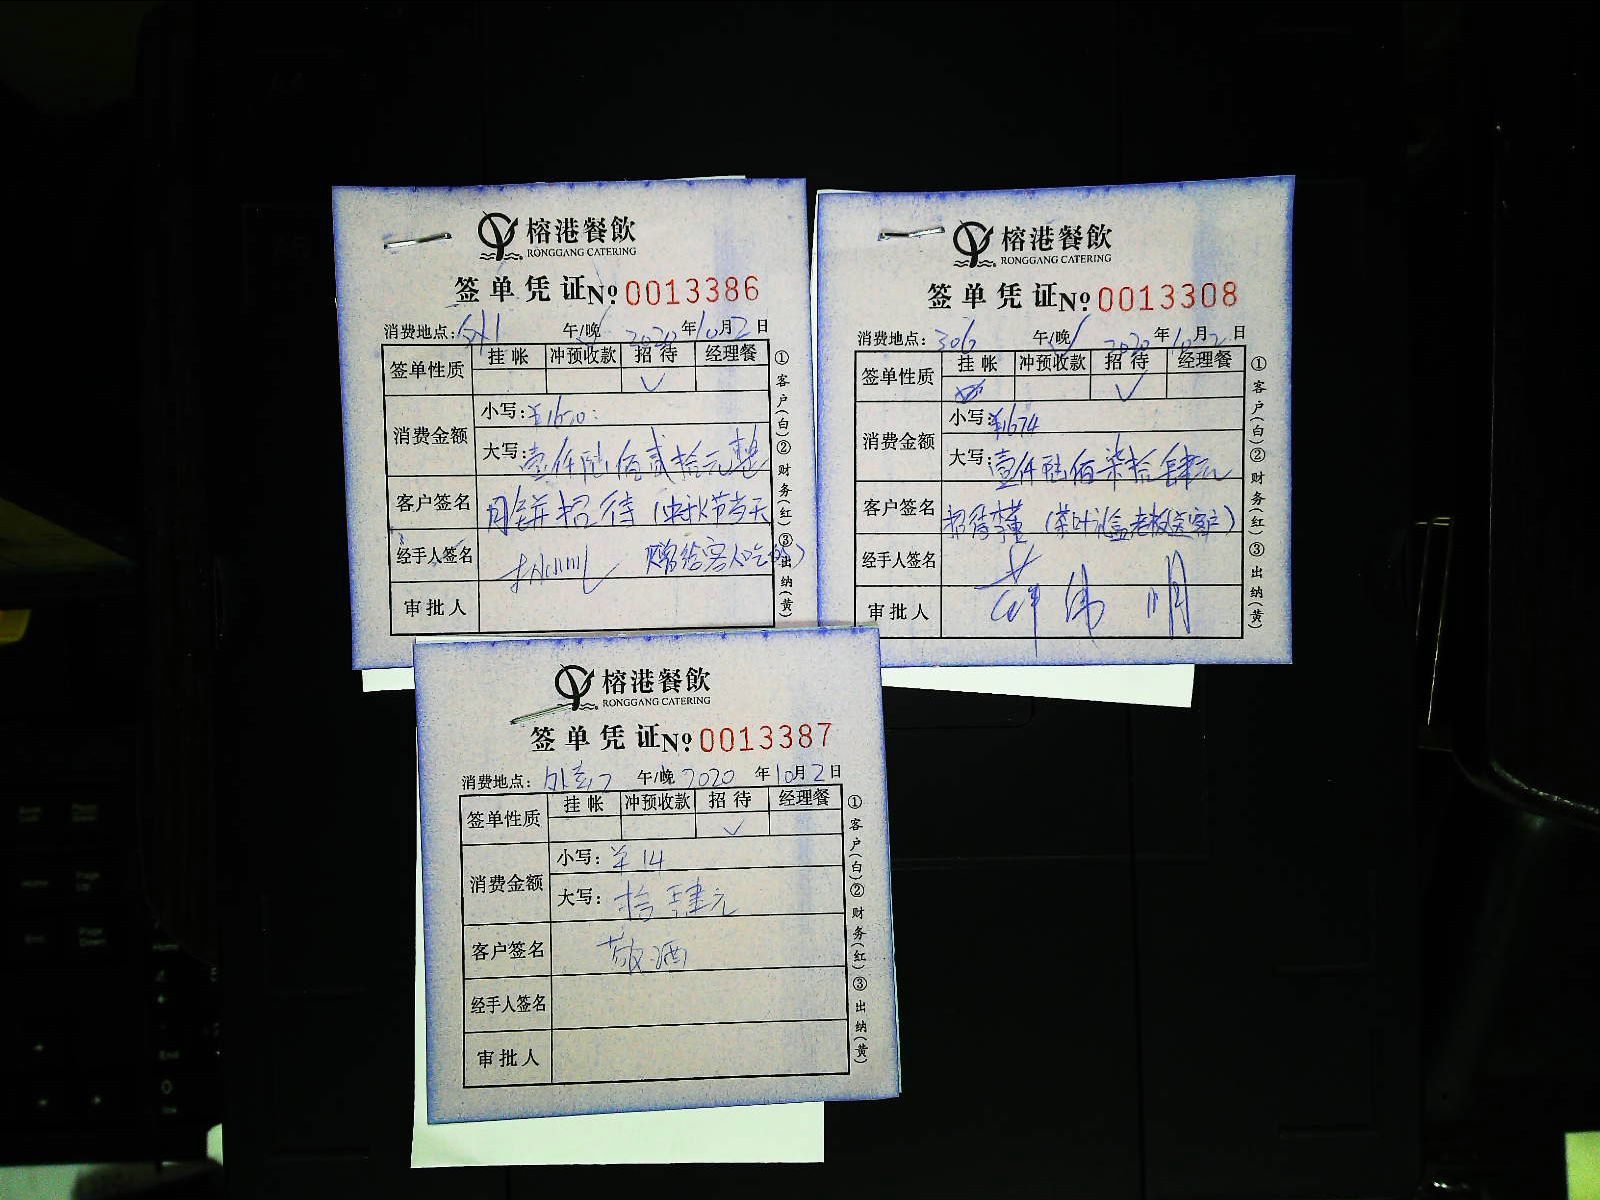 榕港餐飲
RONGGANG CATERING
签单凭证 No 0013386
消费地点: 午/晚 2020年10月2日
签单性质 挂帐 冲预收款 招待 经理餐
✓
消费金额 小写:
大写: 壹仟陆佰贰拾元整
客户签名 月饼招待(中秋节当天
经手人签名 赠给客人吃的)
审批人
①客户(白)②财务(红)③出纳(黄)
榕港餐飲
RONGGANG CATERING
签单凭证 No 0013308
消费地点: 306 午/晚 2020年10月2日
签单性质 挂帐 冲预收款 招待 经理餐
✓
消费金额 小写: ¥1674
大写: 壹仟陆佰柒拾肆元
客户签名 招待李董(茶叶礼盒老板定客户)
经手人签名
审批人
①客户(白)②财务(红)③出纳(黄)
榕港餐飲
RONGGANG CATERING
签单凭证 No 0013387
消费地点: 午/晚 2020年10月2日
签单性质 挂帐 冲预收款 招待 经理餐
✓
消费金额 小写: ¥14
大写: 拾肆元
客户签名 敬酒
经手人签名
审批人
①客户(白)②财务(红)③出纳(黄)